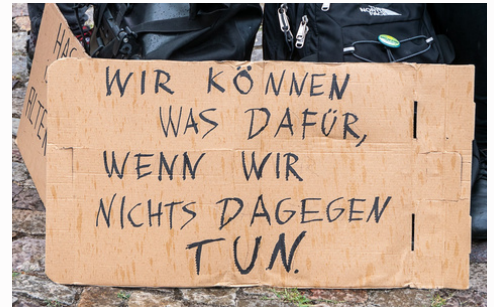 HAS
ALTEN
WIR KÖNNEN
WAS DAFÜR,
WENN WIR
NICHTS DAGEGEN
TUN.